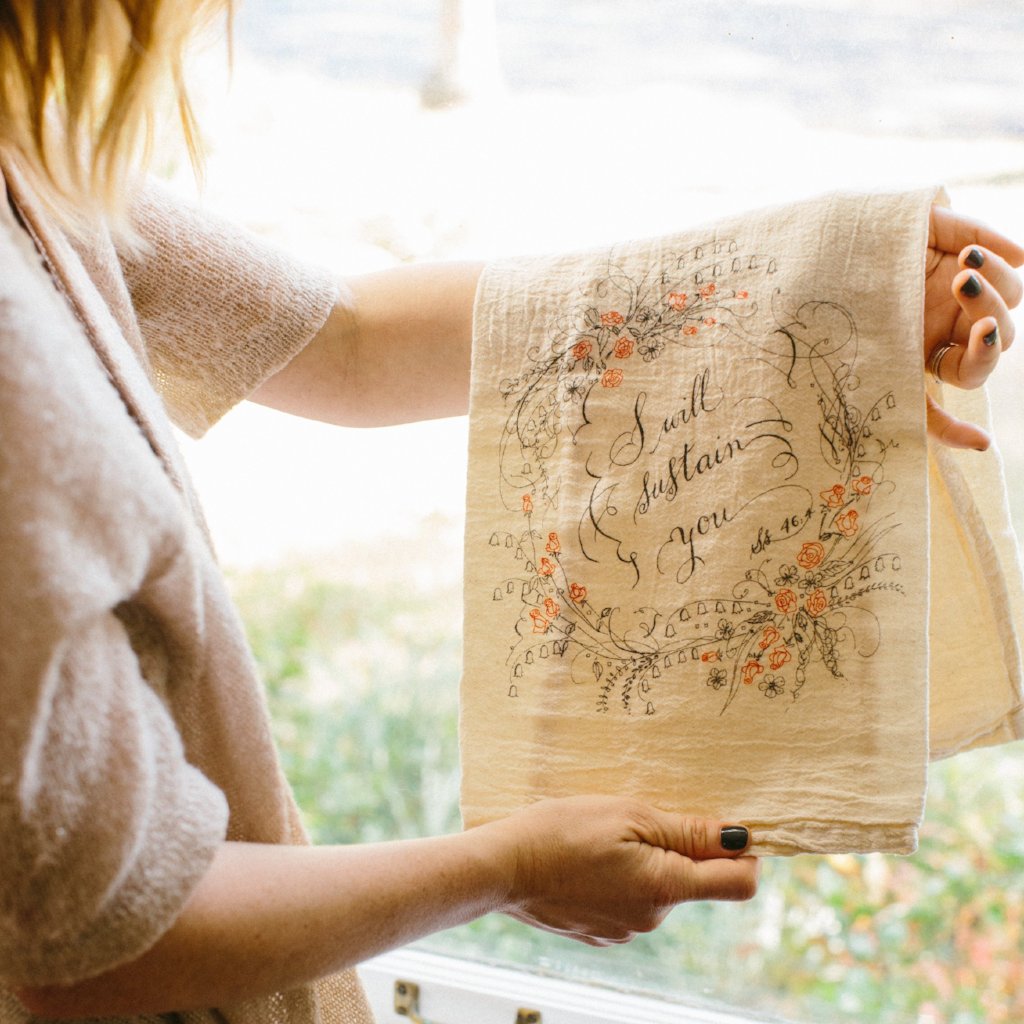 I will
sustain
you
Is 46.4